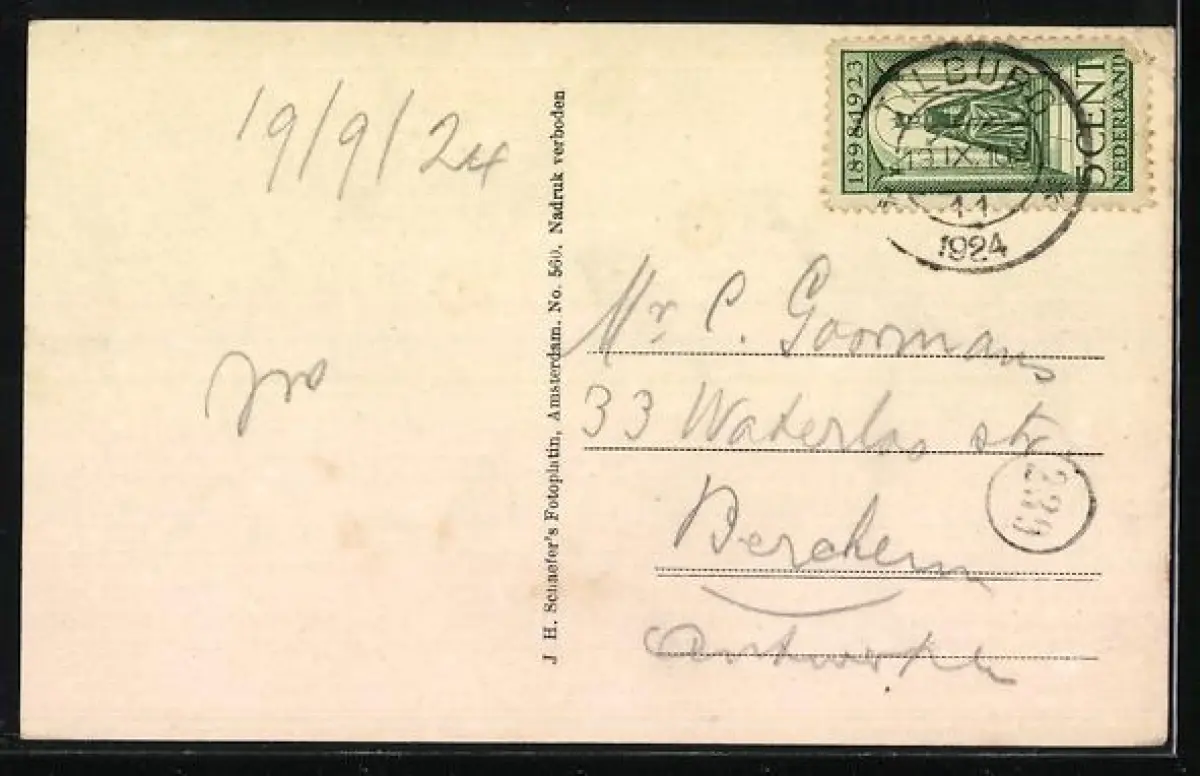 19/9/24
J. H. Schaefer's Fotoplatin, Amsterdam. No. 560. Nadruk verboden
1898-1923
5 CENT
NEDERLAND
TILBURG
1924
Mr C. Goormans
33 Waterloo str
Berchem
Antwerpen